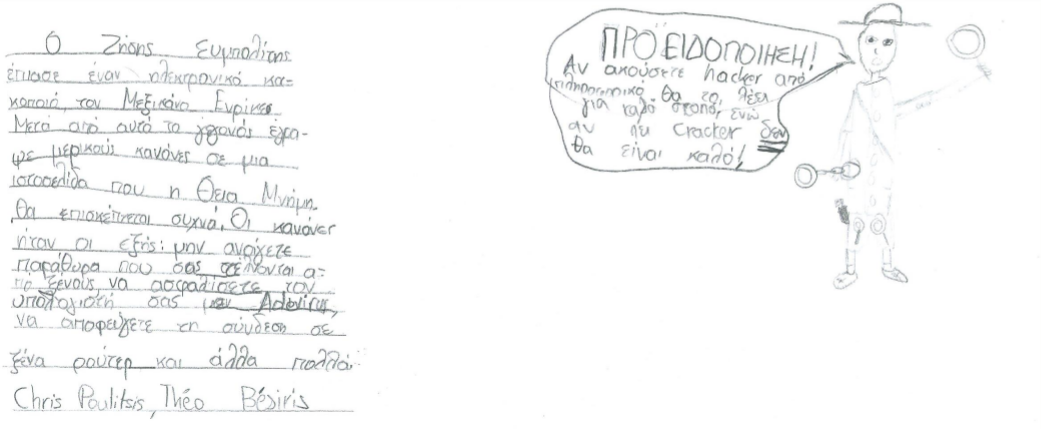 Ο Ζήσης Ευμπολίτης
έπιασε έναν ηλεκτρονικό κα-
κοποιό, τον Μεξικάνο Ενρίκε.
Μετά από αυτό το γεγονός έγρα-
ψε μερικούς κανόνες σε μια
ιστοσελίδα που η Θεία Μνήμη
θα επισκέπτεται συχνά. Οι κανόνες
ήταν οι εξής: μην ανοίγετε
παράθυρα που σας στέλνονται α-
πό ξένους, να ασφαλίσετε τον
υπολογιστή σας με Antivirus,
να αποφεύγετε τη σύνδεση σε
ξένα ρούτερ και άλλα πολλά.
Chris Poulitsis, Théo Bésiris
ΠΡΟΕΙΔΟΠΟΙΗΣΗ!
Αν ακούσετε hacker από
θα το λέει
για καλό σκοπό, ενώ
αν λέει Cracker δεν
θα είναι καλό!